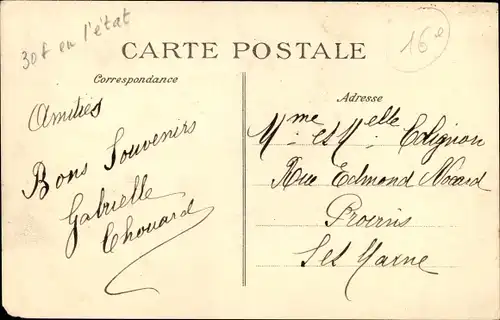 30f en l'état
16e
CARTE POSTALE
Correspondance
Adresse
Amitiés
Bons Souvenirs
Gabrielle
Chouard
Mme et Melle Colignon
Rue Edmond Nocard
Provins
Set Marne